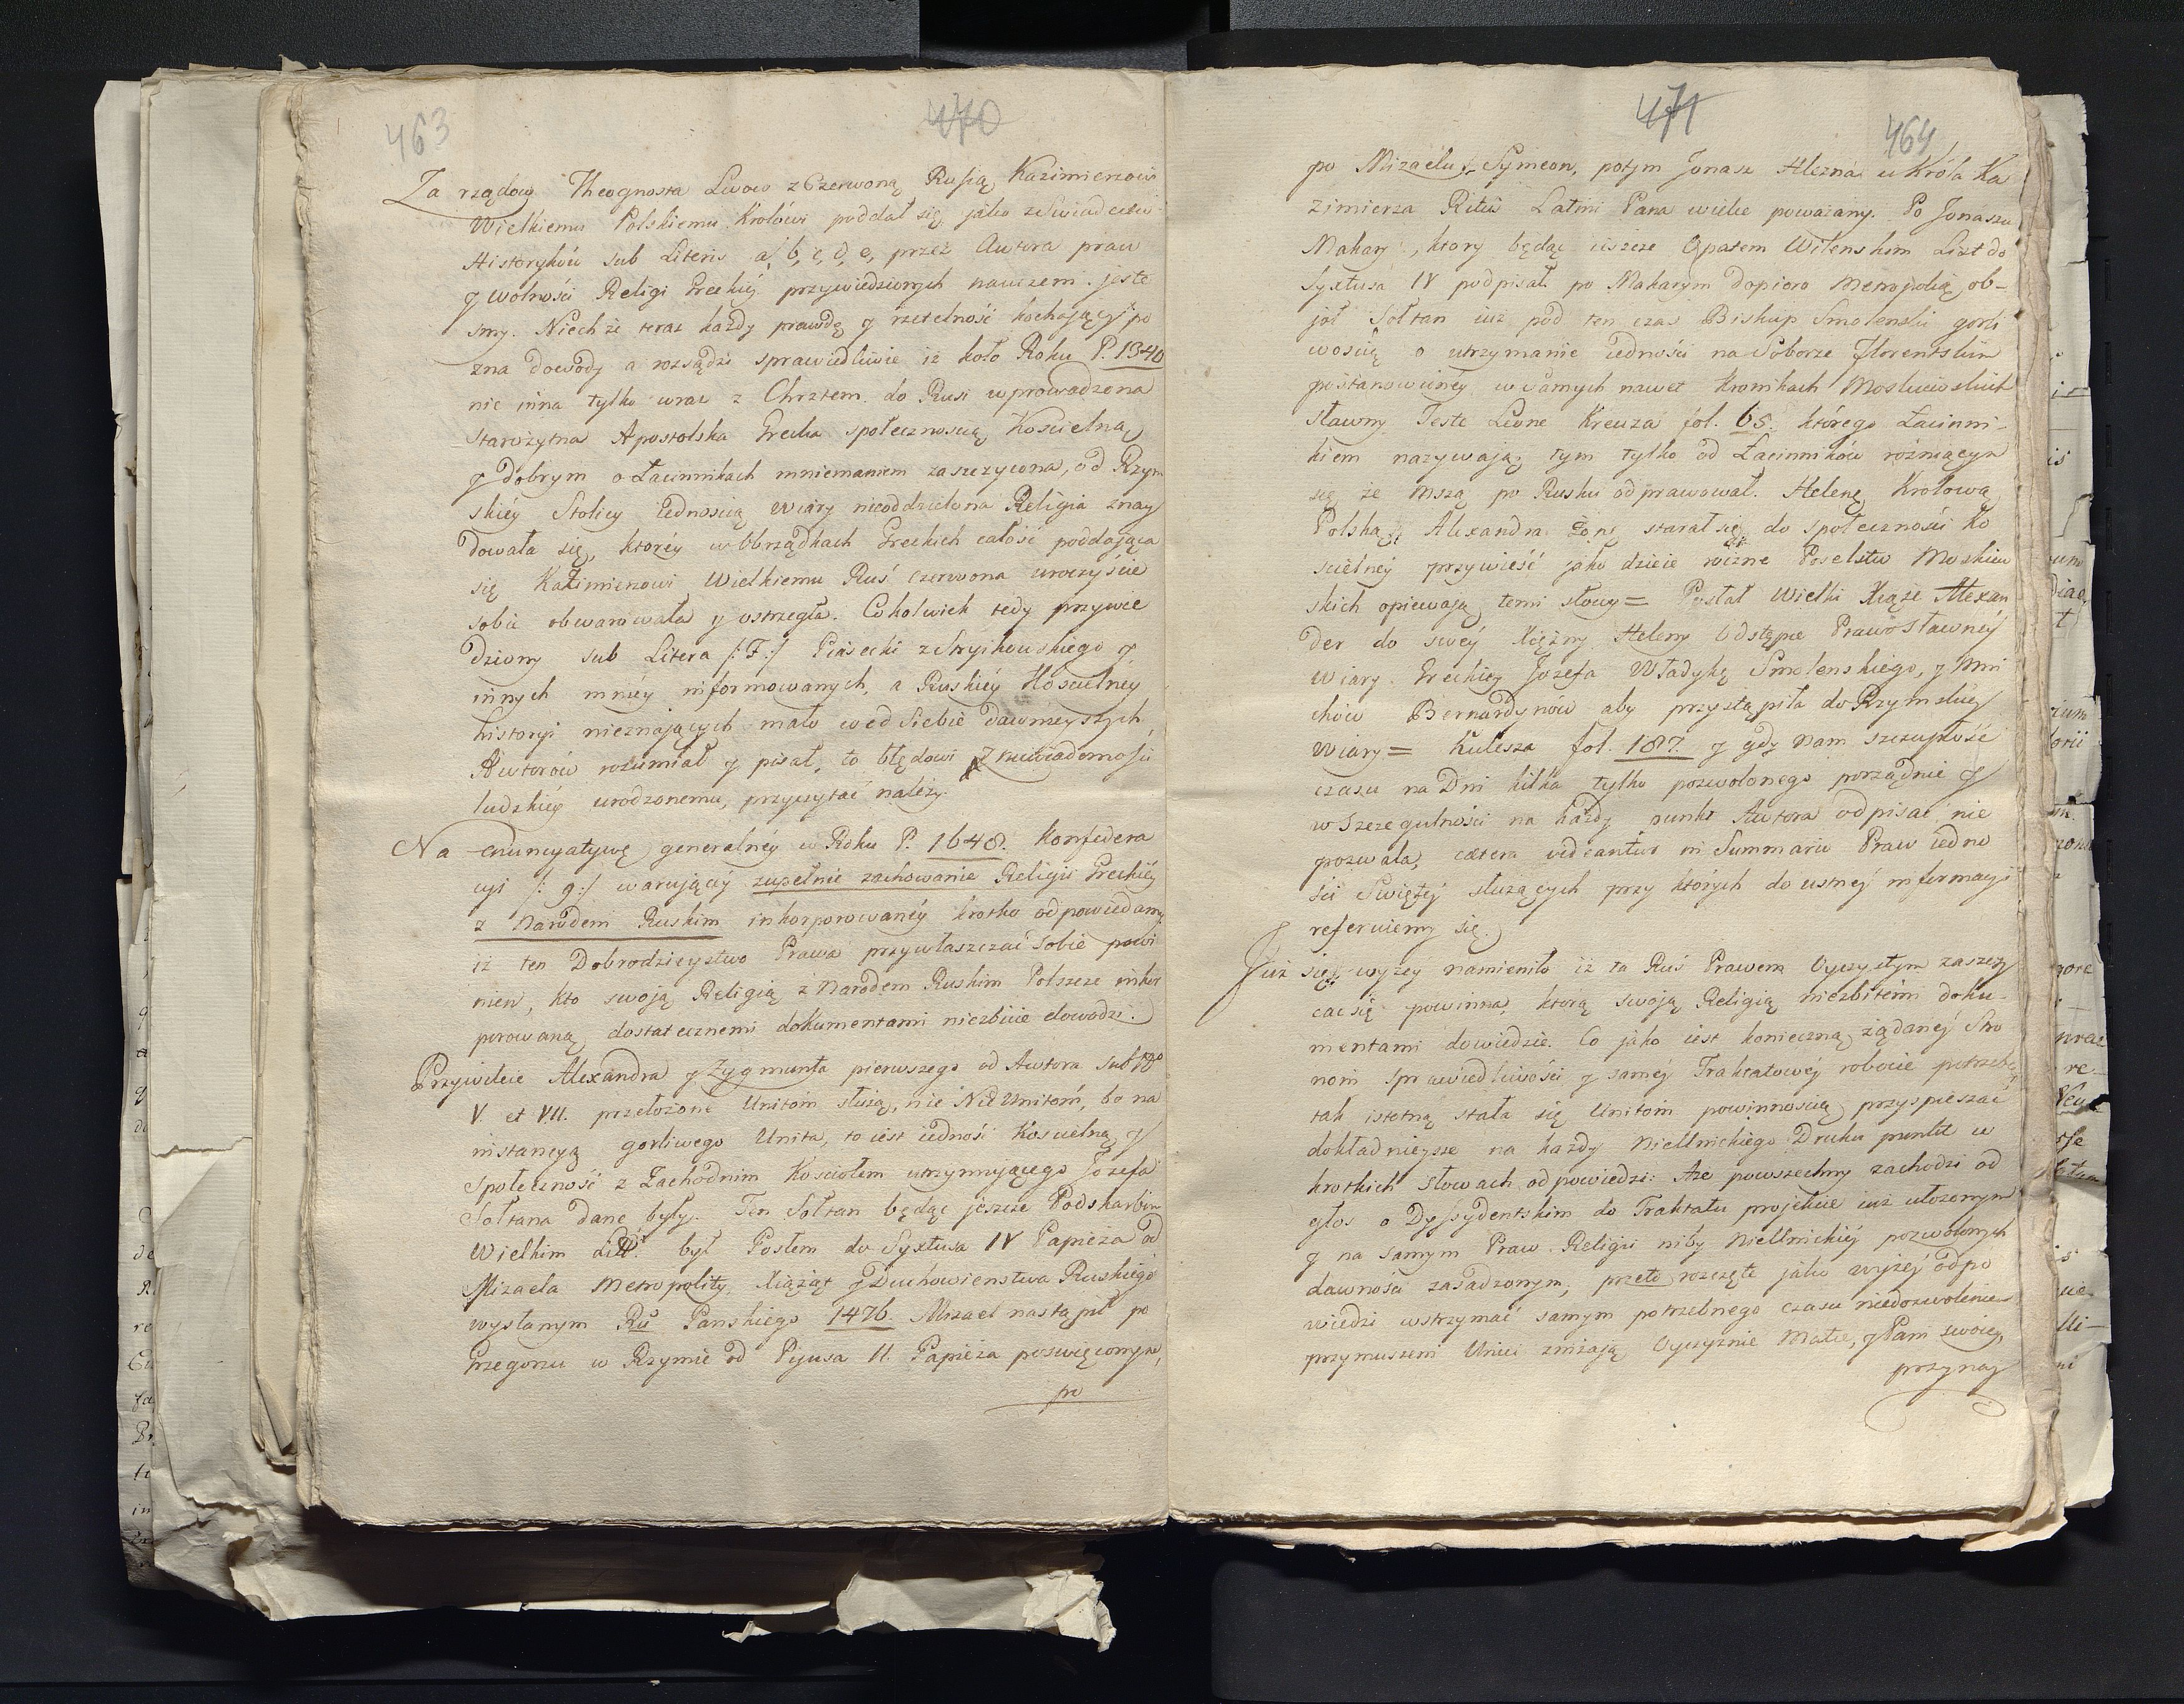 463
470
Za rządow Theognosta Lwow z Czerwoną Rusią Kazimierzowi
Wielkiemu Polskiemu Krolówi poddał się, jako z Swiadectw
Historyków sub Literis a, b, c, d, e, przez Autora praw
y wolności Religi Greckiéy przywiedzionych nauczeni jeste
smy. Niech że teraz każdy prawdę y rzetelność kochający po
zna dowody a rozsądzi sprawiedliwie iż koło Roku P. 1340
nie inna tylko wraz z Chrztem do Rusi wprowadzona
Starożytna Apostolska Grecka społecznoscią Koscielną
y dobrym o Łacinnikach mniemaniem zaszczycona, od Rzym
skiéy Stolicy Iednoscią wiary nieoddzielona Religia znay
dowała się, któréy w Obrządkach Greckich całość poddająca
się Kazimierzowi Wielkiemu Ruś czerwona uroczyście
sobie obwarowała y ostrzegła. Cokolwiek tedy przywie
dziony sub Litera /: F :/ Piasecki z Stryikowskiego y
innych mniéy informowanych, a Ruskiéy Koscielnéy
historyi nieznających mało wed Siebie dawnieyszych
Autorów rozumiał y pisał, to błędowi z niewiadomosci
ludzkiéy urodzonemu, przyczytać należy.
Na enuncyatywę generalnéy w Roku P. 1648. Konfedera
cyi /: g :/ warującéy zupełnie zachowanie Religii Greckiéy
z Narodem Ruskim inkorporowanéy krotko odpowiedamy
iż ten Dobrodzieystwo Prawa przywłaszczać Sobie powi
nien, kto swoją Religią z Narodem Ruskim Polszcze inkor
porowaną dostatecznemi dokumentami niezbicie dowodzi.
Przywileie Alexandra y Zygmunta pierwszego od Autora sub No
V. et VII. przełożone Unitom służą, nie NieUnitom, bo na
instancyą gorliwego Unita, to iest iedność Koscielną y
społeczność z Zachodnim Kosciołem utrzymującego Jozefa
Sołtana dane były. Ten Sołtan będąc jeszcze Podskarbim
Wielkim Litt. był Posłem do Syxtusa IV Papieża od
Mizaela Metropolity, Xiążąt y Duchowienstwa Ruskiego
wysłanym Ru Panskiego 1476. Mizael nastąpił po
Grzegorzu w Rzymie od Pijusa II. Papieża poswięconym,
po
471
464
po Mizaelu Symeon, potym Jonasz Hlezna u Króla Ka
zimierza Ritus Latini Pana wielce poważany. Po Jonaszu
Makary, ktory będąc ieszcze Opatem Wilenskim List do
Syxtusa IV podpisał. po Makarym dopiero Metropolią ob-
jął Sołtan iuż pod ten czas Biskup Smolenski gorli
woscią o utrzymanie iednosci na Soborze Florentskim
postanowionéy w Samych nawet Kronikach Moskiewskich
sławny Teste Leone Kreuza fol. 65. którego Łacinni-
kiem nazywają; tym tylko od Łacinników rózniącym
się że mszą po Rusku odprawował. Helenę Krolową
Polską, Alexandra Żonę starał się do społeczności Ko
scielnéy przywieść jako dzieie rożne Poselstw Moskiew
skich opiewają temi słowy = Posłał Wielki Xiąże Alexan
der do swéy Xiężny Heleny Odstępce Prawosławnéy
wiary Greckiéy Jozefa Władykę Smolenskiego, y Mni
chów Bernardynow aby przystąpiła do Rzymskiéy
wiary = Kulesza fol. 187. y gdy Nam szczupłość
czasu na Dni kilka tylko pozwolonego porządnie y
w szczegulności na każdy punkt Autora odpisać nie
pozwala, cætera videantur in Summario Praw iedno
ści Swiętéj służących przy których do ustnéj informacyi
referuiemy się.
Już się wyżey namieniło iż ta Ruś Prawem Oyczystym zaszczy
cać się powinna, ktorą swoją Religią niezbitemi doku-
mentami dowiedzie. Co jako iest konieczną żądanéj Stro
nom sprawiedliwości y saméj Traktatowéj robocie potrzebą
tak istotną stała się Unitom powinnoscią przyspieszać
dokładnieysze na każdy Nieunickiego Druku punkt w
krotkich słowach odpowiedzi: Aże powszechny zachodzi od
głos o Dyssydentskim do Traktatu projekcie iuż ułożonym
y na samym Praw Religii niby Nieunickiéj pozwolonych
dawności zasadzonym, przeto rozczęte jako wyżéj odpo
wiedzi wstrzymać samym potrzebnego czasu niedozwoleniem
przymuszeni Unici zniżają Oyczyznie Matce, y Pani swoiéy,
przynay